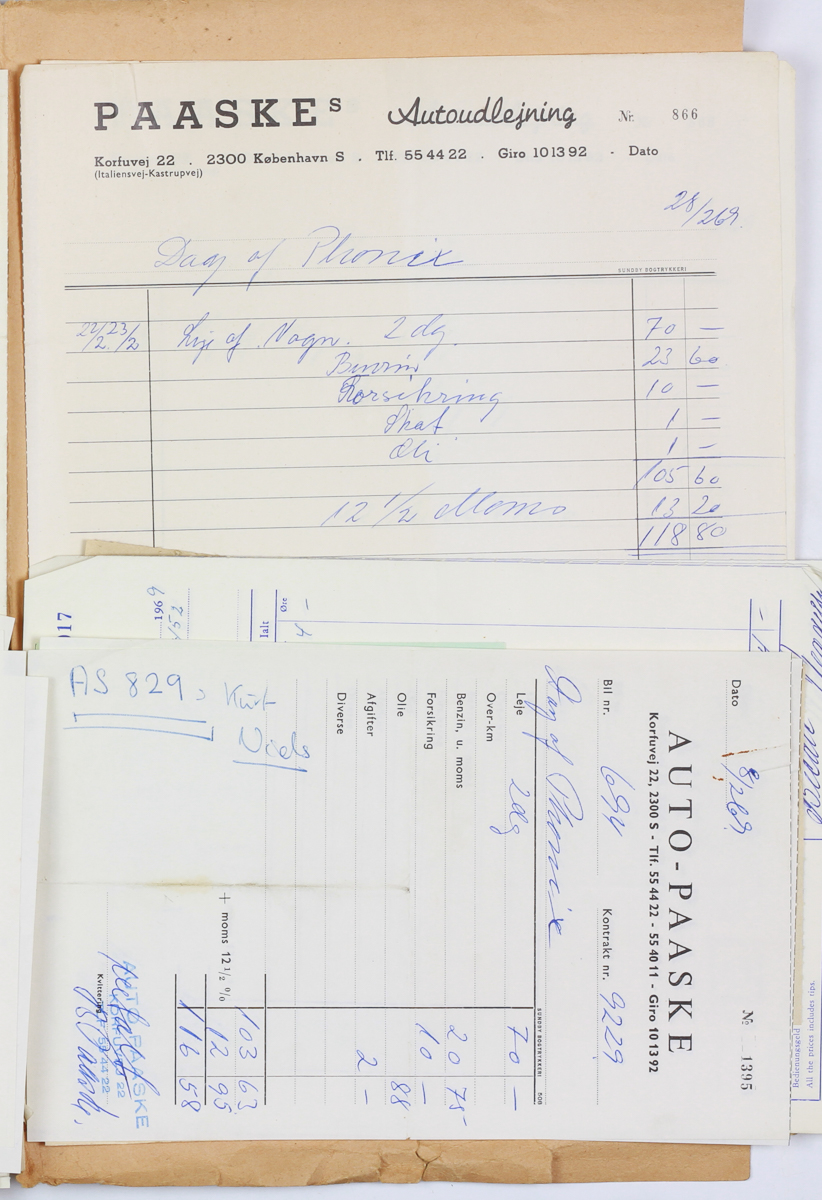 PAASKEs Autoudlejning Nr. 866
Korfuvej 22 . 2300 København S . Tlf. 55 44 22 . Giro 10 13 92 - Dato
(Italiensvej-Kastrupvej)
28/2 69.
Dag of Phonix
SUNDBY BOGTRYKKERI
22/2. 23/2 Leje af Vogn. 2 dg. 70 —
Benzin 23 60
Forsikring 10 —
Skat 1 —
Oli 1 —
105 60
12 1/2 Moms 13 20
118 80
017
196 6
Ialt
Øre
AS 829, Kurt
Niels
Dato 8/2 69.
№ 1395
AUTO-PAASKE
Korfuvej 22, 2300 S - Tlf. 55 44 22 - 55 40 11 - Giro 10 13 92
Bil nr. 694 Kontrakt nr. 9229
Dag of Phonix
SUNDBY BOGTRYKKERI 508
Leje 2 dg 70 —
Over-km
Benzin, u. moms 20 75
Forsikring 10 —
Olie 88
Afgifter 2 —
Diverse
103 63
+ moms 12 1/2 % 12 95
116 58
AUTO PAASKE
KORFUVEJ 22
55 44 22
Kvittering
Bedienungsgeld
All the prices includes tips.